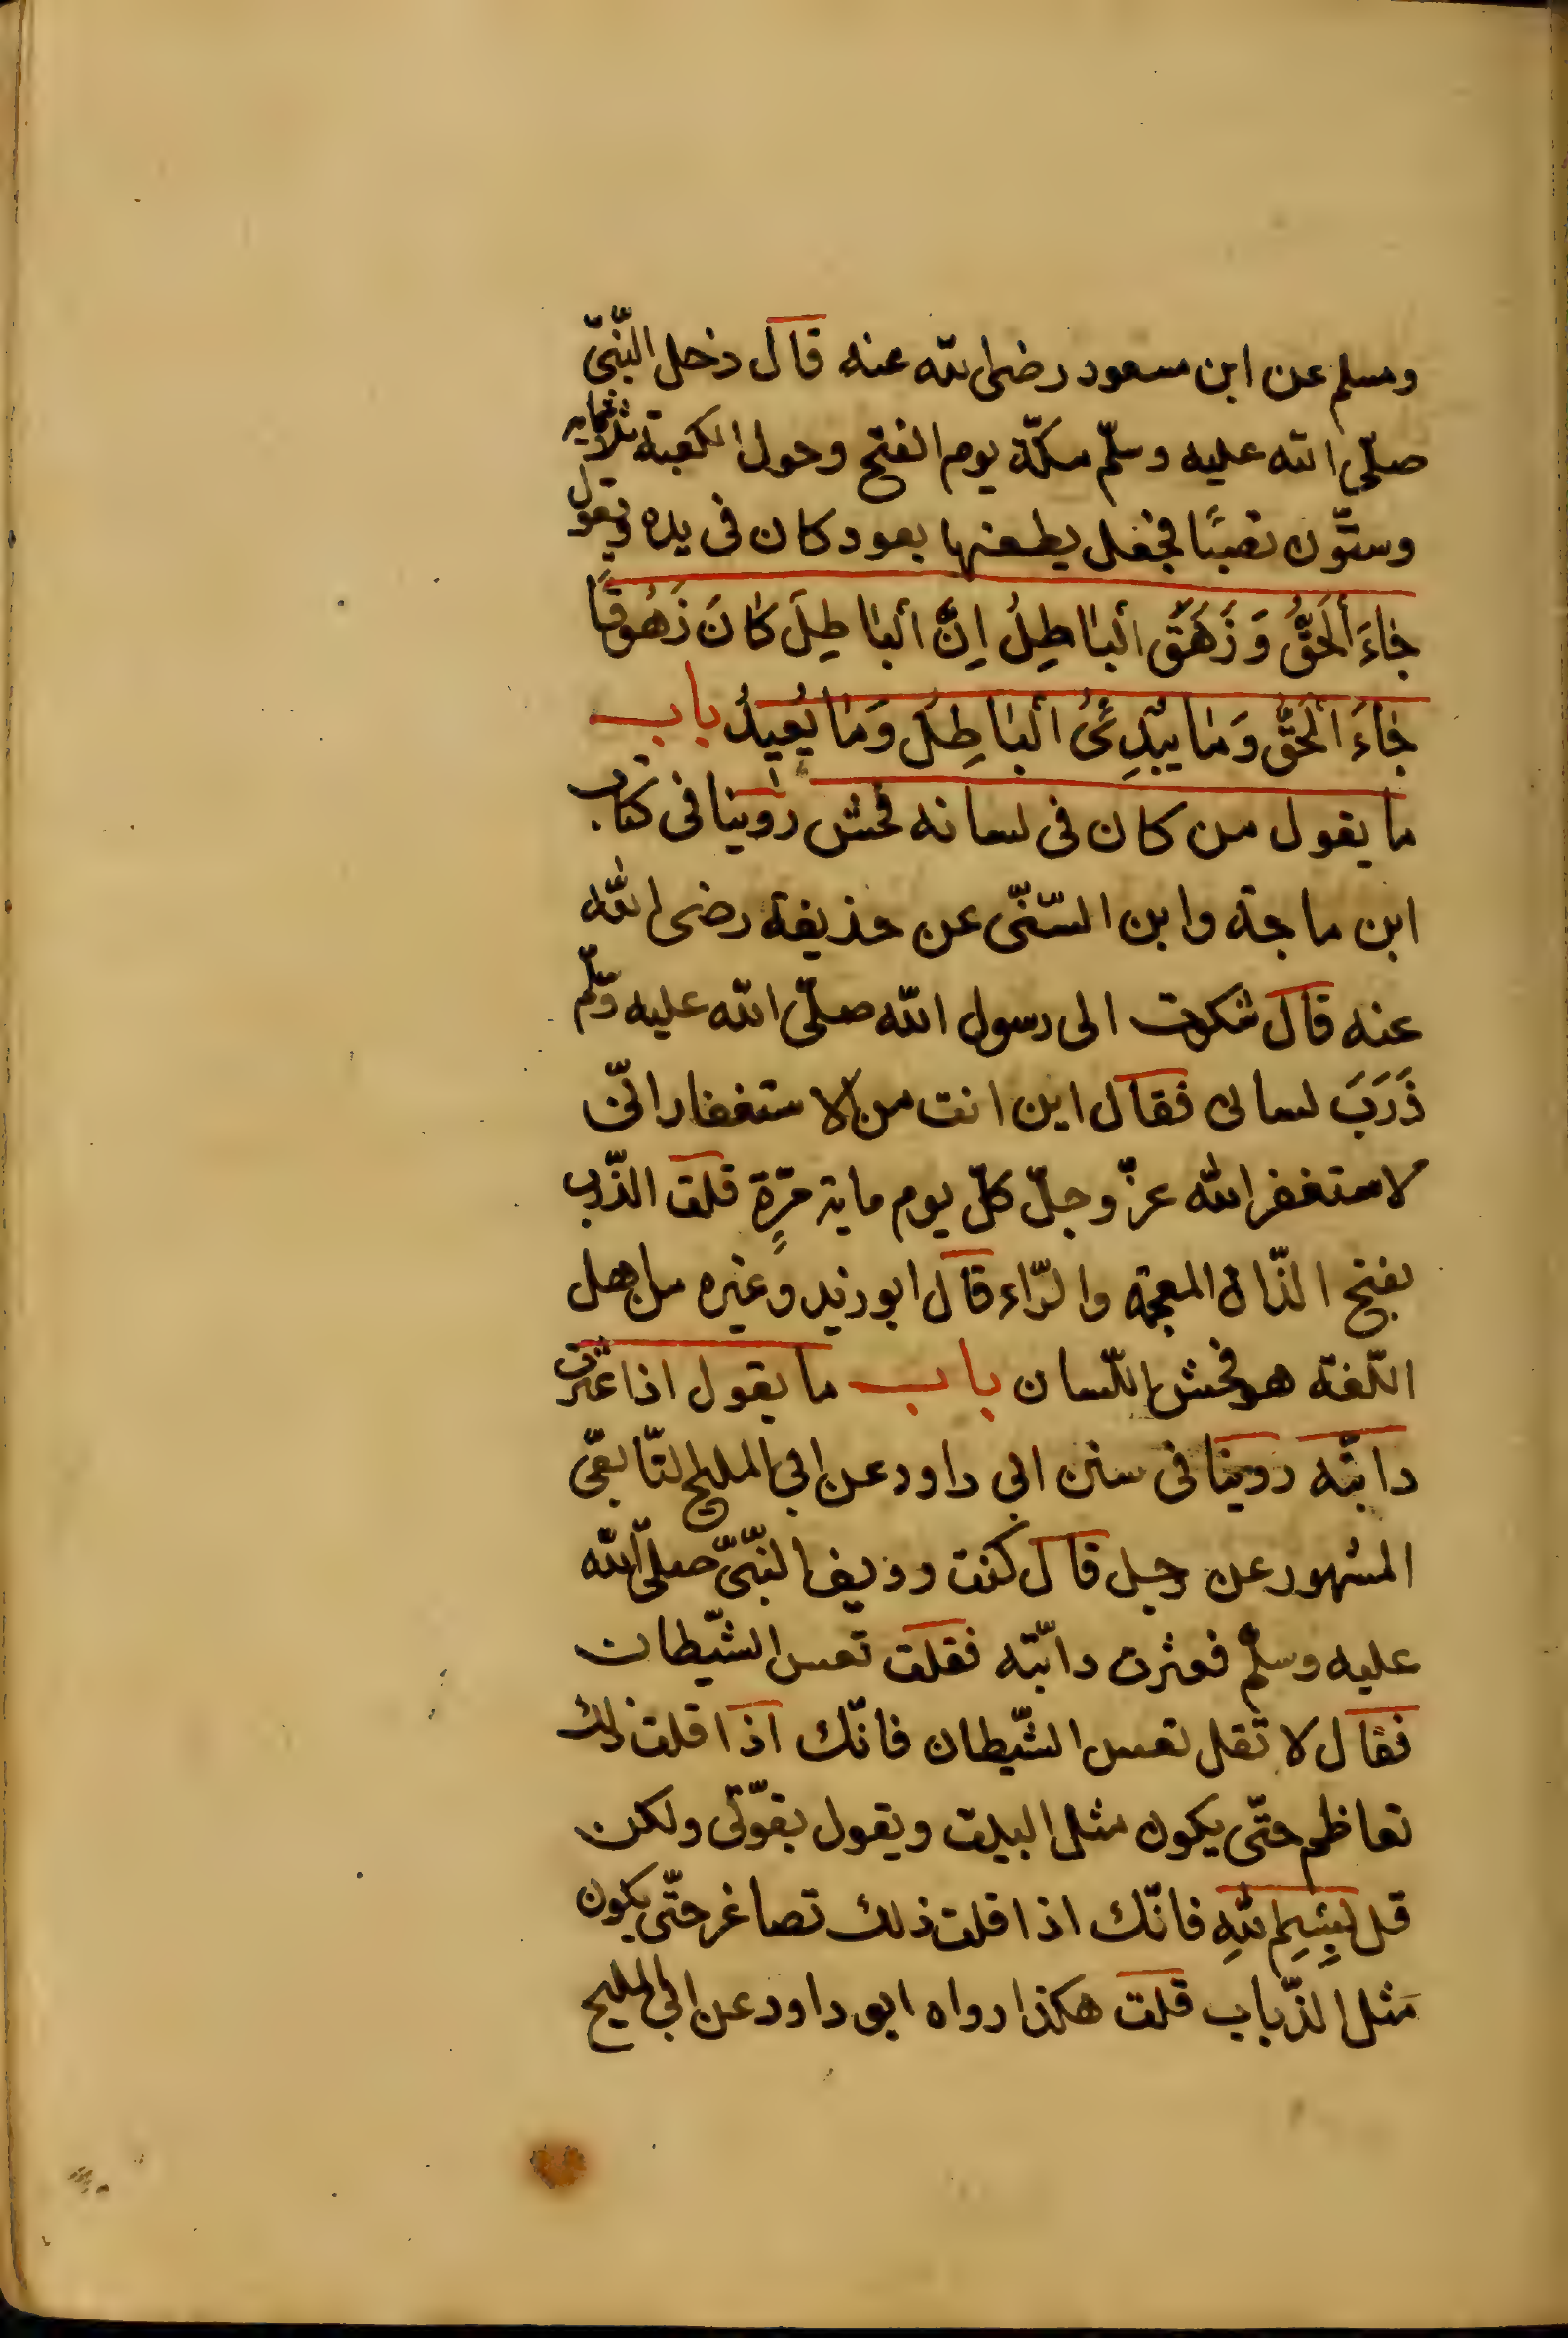 ومسلم عن ابن مسعود رضى الله عنه قال دخل النّبىّ
صلّى الله عليه وسلّم مكّة يوم الفتح وحول الكعبة ثلاثمايه
وستّون نصبًا فجعل يطعنها بعود كان فى يده ويقول
جَاءَ أَلحَقُّ وَزَهَقَ اَلبَاطِلُ اِنَّ اَلبَاطِلَ كَانَ زَهُوقًا
جَاءَ اْلحَقُّ وَمَا يُبْدِئُ اَلبَاطِلُ وَمَا يُعِيدُ باب
ما يقول من كان فى لسانه فحش روينا فى كتاب
ابن ماجة وابن السّنّى عن حذيفة رضى الله
عنه قال شكوت الى رسول الله صلّى الله عليه وسلّم
ذَرَبَ لسانى فقال اين انت من الاستغفار انّى
لاستغفر الله عزّ وجلّ كلّ يوم ماية مرّةٍ قلت الذّرب
بفتح الذّال المعجمة والرّاء قال ابو زيد وغيره من اهل
اللّغة هو فحش اللّسان باب ما يقول اذا عثرت
دابّته روينا فى سنن ابى داود عن ابى المليح التّابعّى
المشهور عن رجل قال كنت رديف النّبىّ صلّى الله
عليه وسلّم فعثرت دابّته فقلت تعس الشّيطان
فقال لا تقل تعس الشّيطان فانّك اذا قلت ذلك
تعاظم حتّى يكون مثل البيت ويقول بقوّتى ولكن
قل بِسْمِ اللهِ فانّك اذا قلت ذلك تصاغر حتّى يكون
مثل الذّباب قلت هكذا رواه ابو داود عن ابى المليح